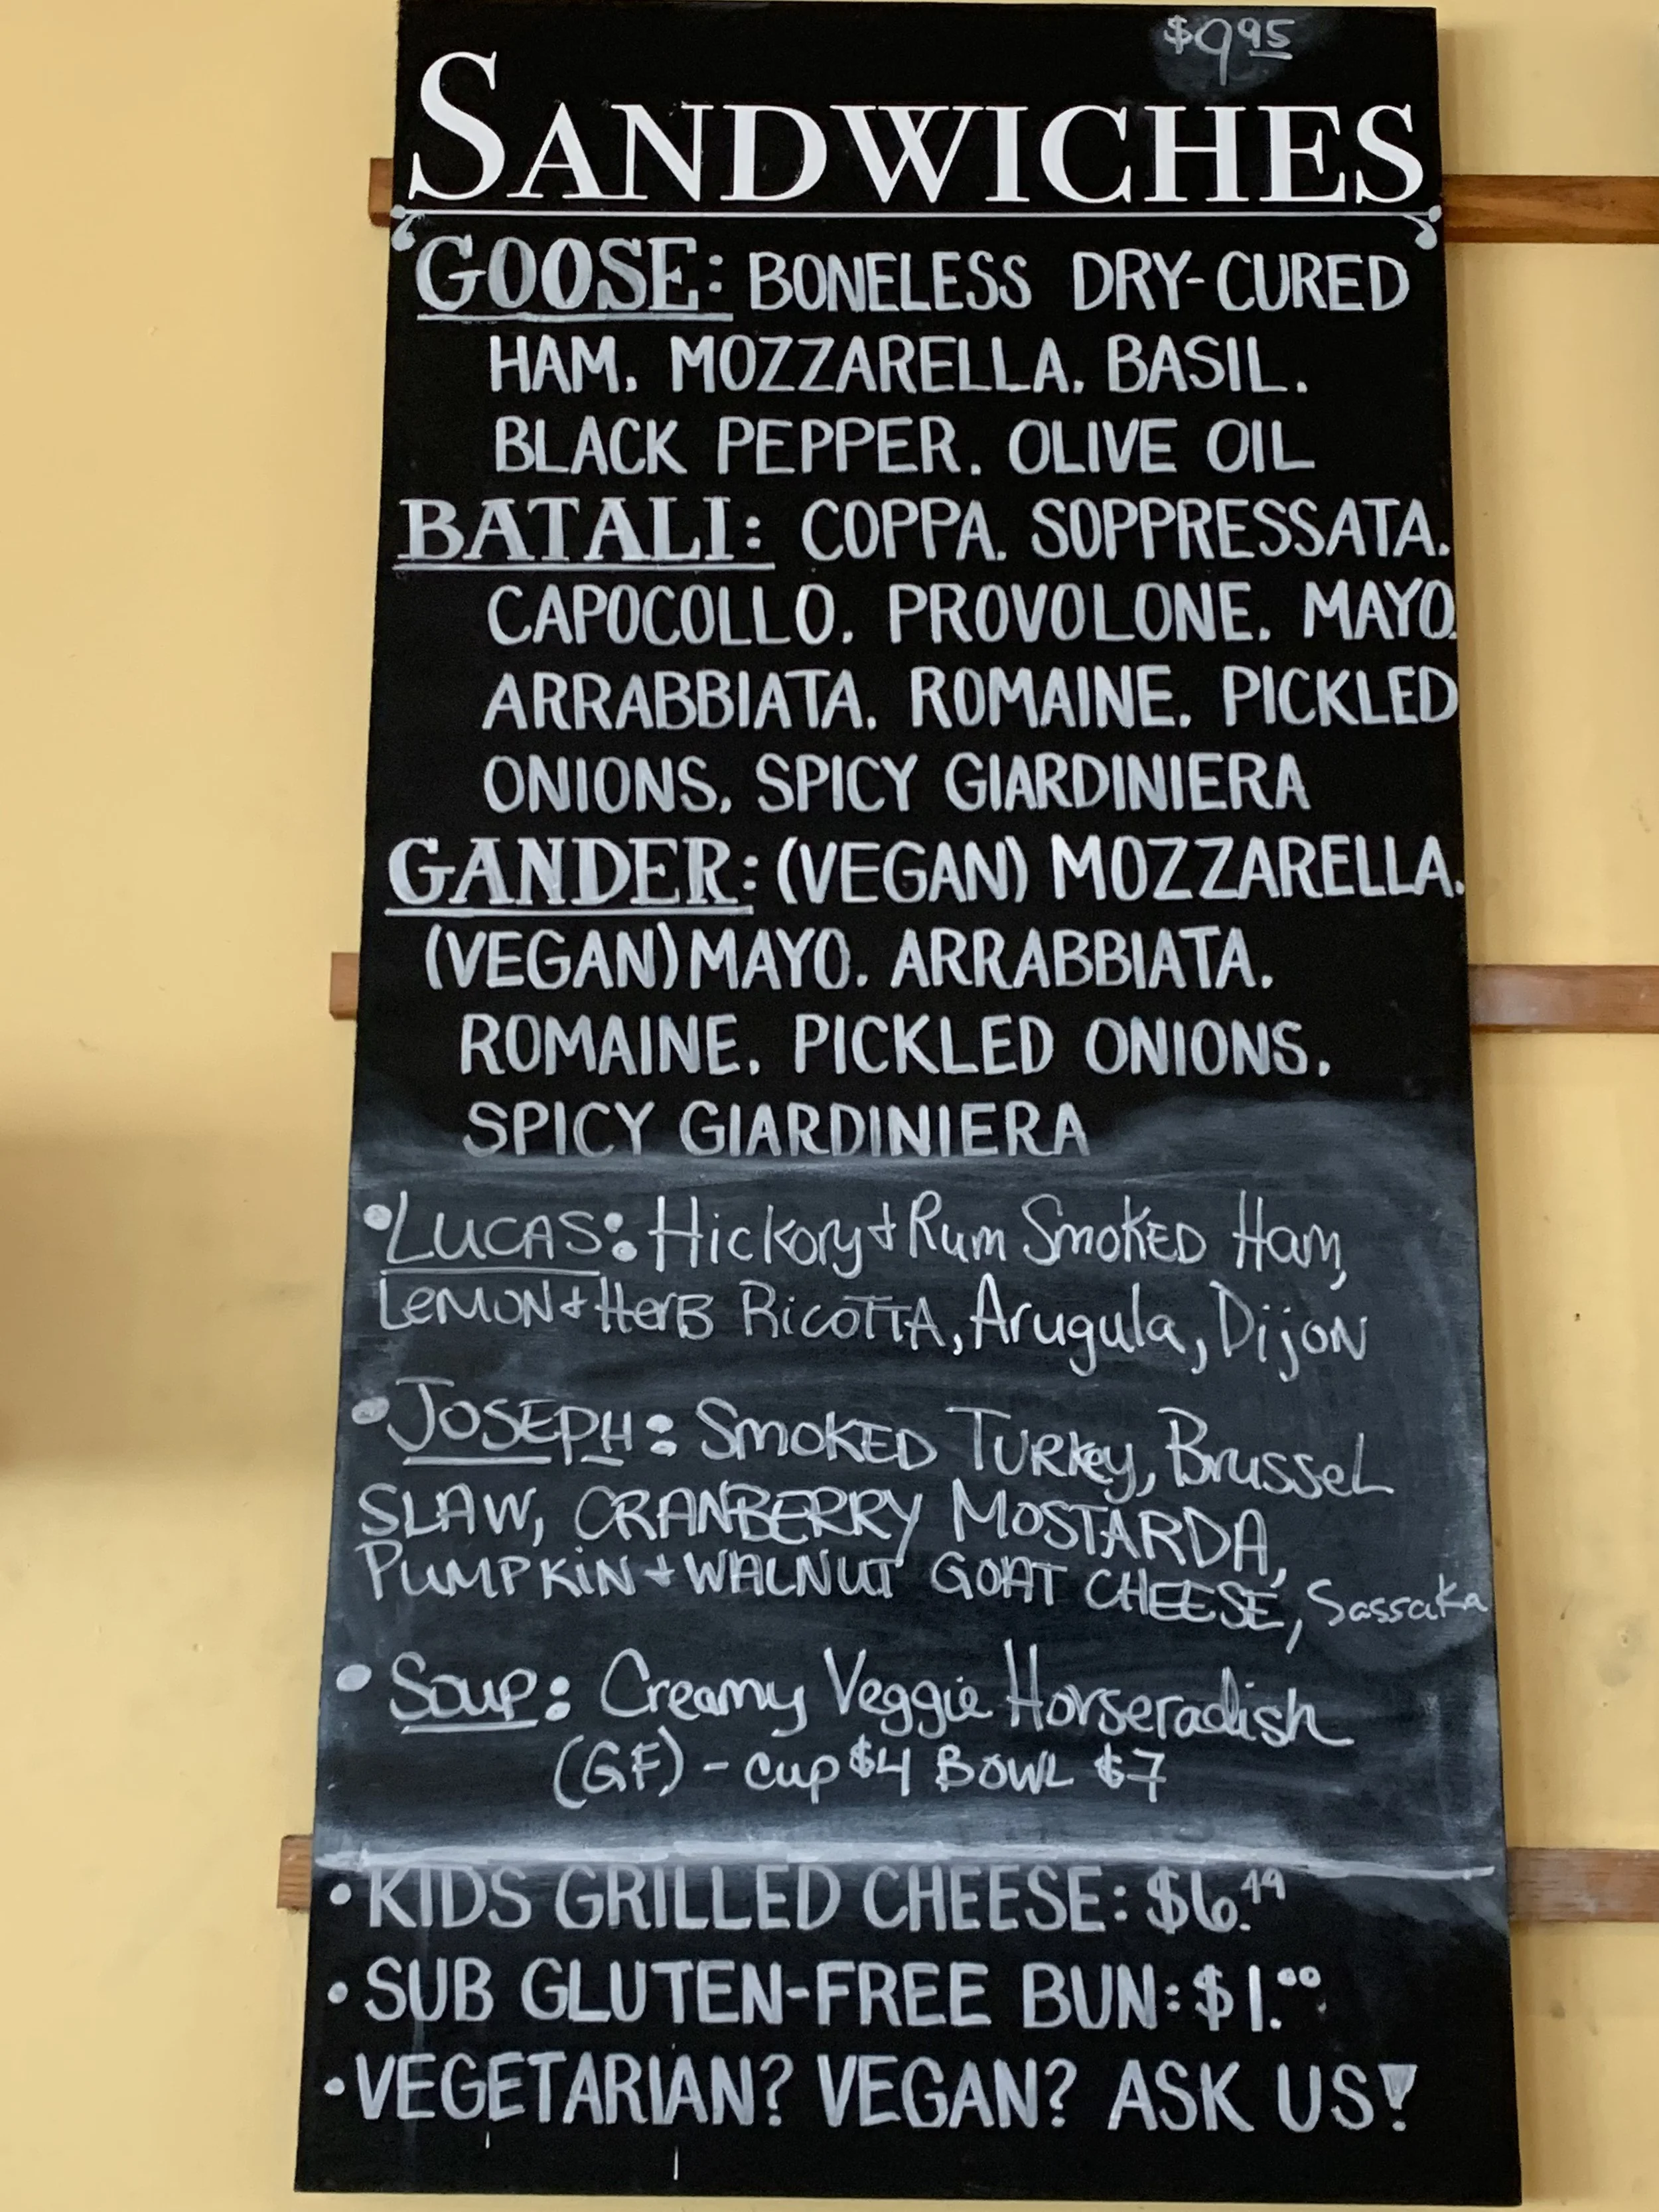 $9.95
SANDWICHES
GOOSE: BONELESS DRY-CURED
HAM, MOZZARELLA, BASIL,
BLACK PEPPER, OLIVE OIL
BATALI: COPPA, SOPPRESSATA,
CAPOCOLLO, PROVOLONE, MAYO,
ARRABBIATA, ROMAINE, PICKLED
ONIONS, SPICY GIARDINIERA
GANDER: (VEGAN) MOZZARELLA,
(VEGAN) MAYO, ARRABBIATA,
ROMAINE, PICKLED ONIONS,
SPICY GIARDINIERA
• LUCAS: Hickory + Rum SMOKED Ham,
LeMON + HerB RICOTTA, Arugula, DijoN
• JOSEPH: SMOKED TURKey, BrusseL
SLAW, CRANBERRY MOSTARDA,
PUMPKiN + WALNUT GOAT CHEESE, Sassaka
• Soup: Creamy Veggie Horseradish
(GF) - cup $4 BOWL $7
• KIDS GRILLED CHEESE: $6.49
• SUB GLUTEN-FREE BUN: $1.00
• VEGETARIAN? VEGAN? ASK US!